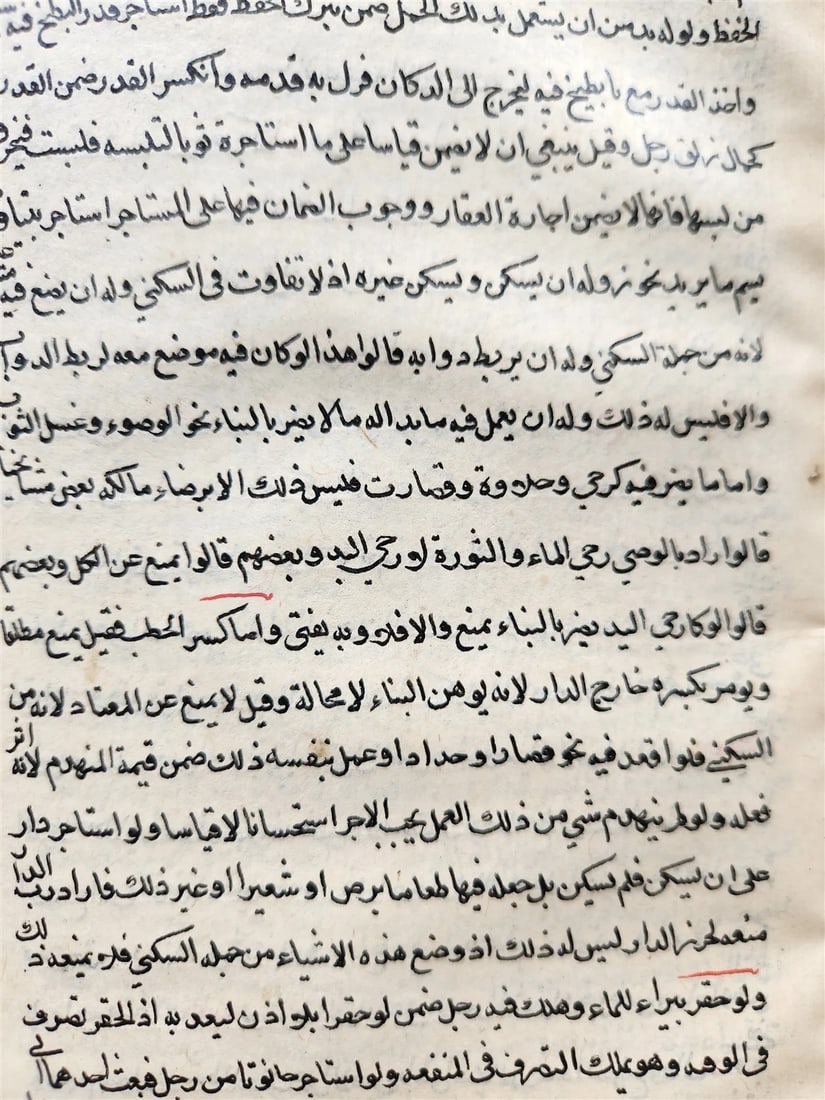 الحفظ ولو له بد من ان يستعمل بذلك الحمل ضمن بترك الحفظ فقط استاجر قدر البطيخ فيه
واخذ القدر مع ما يطبخ فيه ليخرج الى الدكان فزل به قدمه وانكسر القدر ضمن القدر
كحمال زلق رجل وقيل ينبغي ان لا يضمن قياسا على ما استاجرة ثوبا لتلبسه فلبست فتخرق
من لبسها فانها لا يضمن اجارة العقار ووجوب الضمان فيها على المستاجر استاجر بيتا و
يسم ما يريد نحو زوله ان يسكن ويسكن غيره اذ لا تفاوت فى السكنى وله ان يضع فيه
لانه من جملة السكنى وله ان يربط دوابه قالوا هذا لو كان فيه موضع معد لربط الدواب
والا فليس له ذلك وله ان يعمل فيه ما بدا له ما لا يضر بالبناء نحو الوضوء وغسل الثوب
واما ما يضر فيه كرحي وحدادة وقصارت فليس ذلك الا برضاء مالكه بعض مشايخنا
قالوا اراد بالرحى رحي الماء والثورة لو رحي اليد وبعضهم قالوا يمنع عن الكل وبعضهم
قالوا لو كا رحي اليد يضر بالبناء يمنع والا فلا وبه يفتى واما كسر الحطب فقيل يمنع مطلقا
ويومر بكسره خارج الدار لانه يوهن البناء لا محالة وقيل لا يمنع عن المعتاد لانه من
السكنى فلو اقعد فيه نحو قصارا وحدادا او عمل بنفسه ذلك ضمن قيمة المنهدم لانه اثر
فعله ولو لم ينهدم شي من ذلك العمل يجب الاجر استحسانا لا قياسا ولو استاجر دار
على ان يسكن فلم يسكن بل جعله فيها طعاما برص او شعيرا او غير ذلك فاراد رب الدار
منعه لحرز الدار ليس له ذلك اذ وضع هذه الاشياء من جمله السكنى فلا يمنعه ذلك
ولو حفر بيراء للماء وهلك فيه رجل ضمن لو حفرا بلا اذن ليعد به اذ الحفر تصرف
فى الوهد وهو يملك التصرف فى المنفعه ولو استاجر حانوتا من رجل فبعث احدهما الى